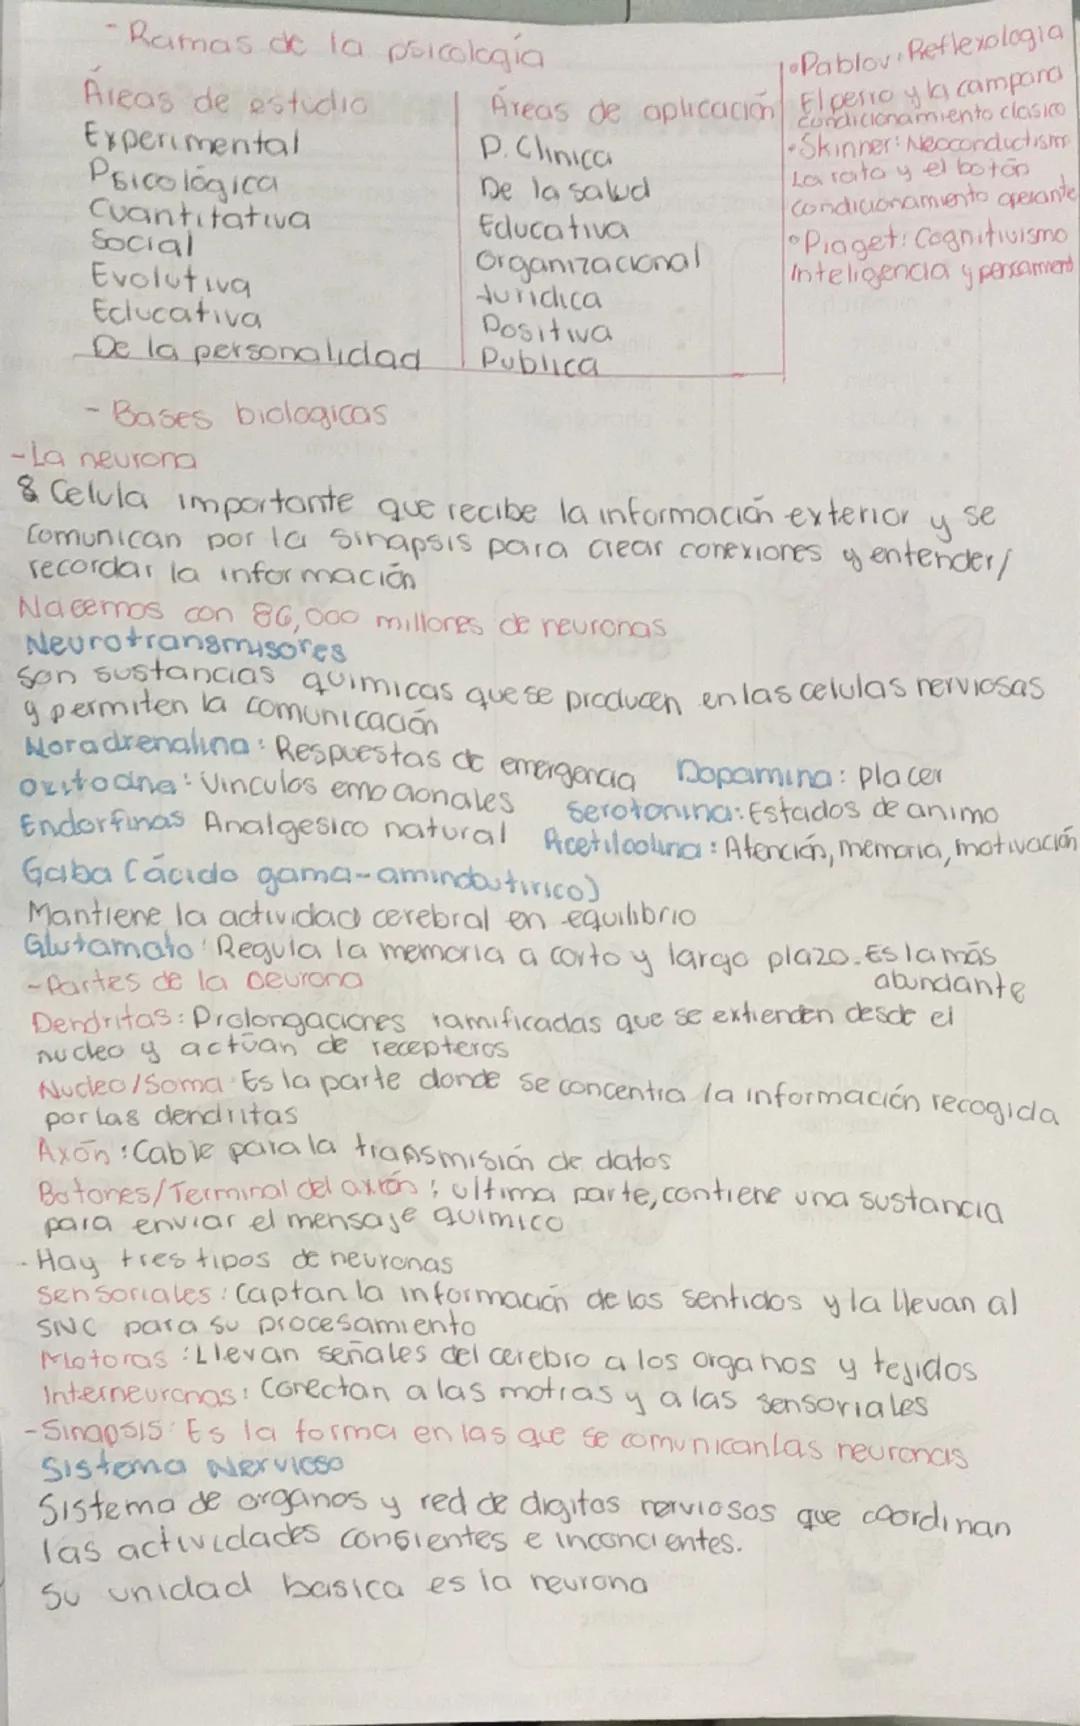 - Ramas de la psicología
Áreas de estudio
Experimental
Psicológica
Cuantitativa
Social
Evolutiva
Educativa
De la personalidad
Áreas de aplicación
P. Clinica
De la salud
Educativa
Organizacional
Juridica
Positiva
Publica
•Pablov: Reflexologia
El perro y la campana
condicionamiento clasico
•Skinner: Neoconductismo
La rata y el botón
condicionamiento operante
•Piaget: Cognitivismo
Inteligencia y pensamient
- Bases biologicas
- La neurona
Celula importante que recibe la información exterior y se
comunican por la sinapsis para crear conexiones y entender/
recordar la información
Nacemos con 86,000 millones de neuronas
Neurotransmisores
Son sustancias quimicas que se producen en las celulas nerviosas
y permiten la comunicación
Noradrenalina: Respuestas de emergencia Dopamina: placer
Oxitocina: Vinculos emocionales Serotonina: Estados de animo
Endorfinas Analgesico natural Acetilcolina: Atención, memoria, motivación
Gaba (ácido gama-aminobutirico)
Mantiene la actividad cerebral en equilibrio
Glutamato: Regula la memoria a corto y largo plazo. Es la más
abundante
- Partes de la neurona
Dendritas: Prolongaciones ramificadas que se extienden desde el
nucleo y actúan de receptores
Nucleo/Soma: Es la parte donde se concentra la información recogida
por las dendritas
Axón: Cable para la transmisión de datos
Botones/Terminal del axón: ultima parte, contiene una sustancia
para enviar el mensaje quimico
- Hay tres tipos de neuronas
Sensoriales: Captan la información de los sentidos y la llevan al
SNC para su procesamiento
Motoras: Llevan señales del cerebro a los organos y tejidos
Interneuronas: Conectan a las motras y a las sensoriales
- Sinapsis: Es la forma en las que se comunican las neuronas
Sistema Nervioso
Sistema de organos y red de digitos nerviosos que coordinan
las actividades consientes e inconcientes.
Su unidad basica es la neurona